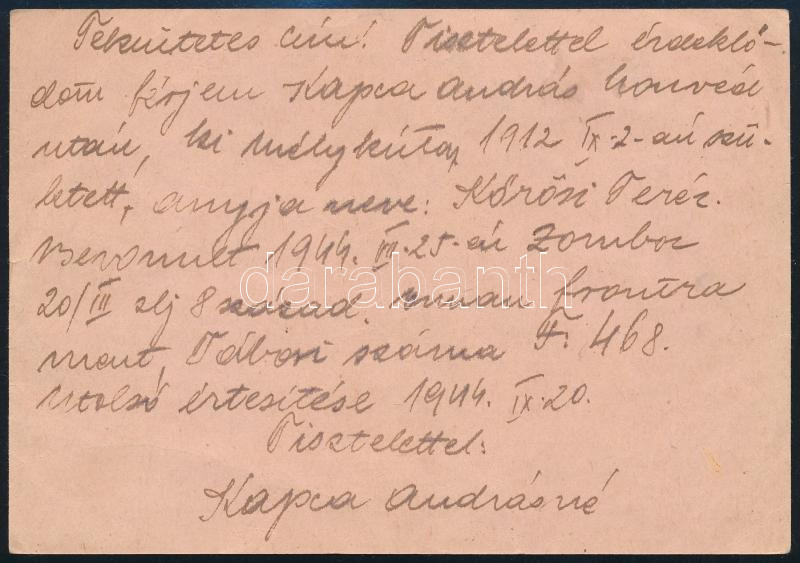 Tekintetes Cím! Tisztelettel érdeklő-
döm férjem Kapca András honvéd
után, ki Mélykúton 1912 IX-2-án szü-
letett, anyja neve: Kőrösi Teréz.
Bevonult 1944. VII-25-én Zombor
20/III zlj 8 század. onnan frontra
ment, Tábori száma F: 468.
Utolsó értesítése 1944. IX-20.
Tisztelettel:
Kapca Andrásné
darabanth